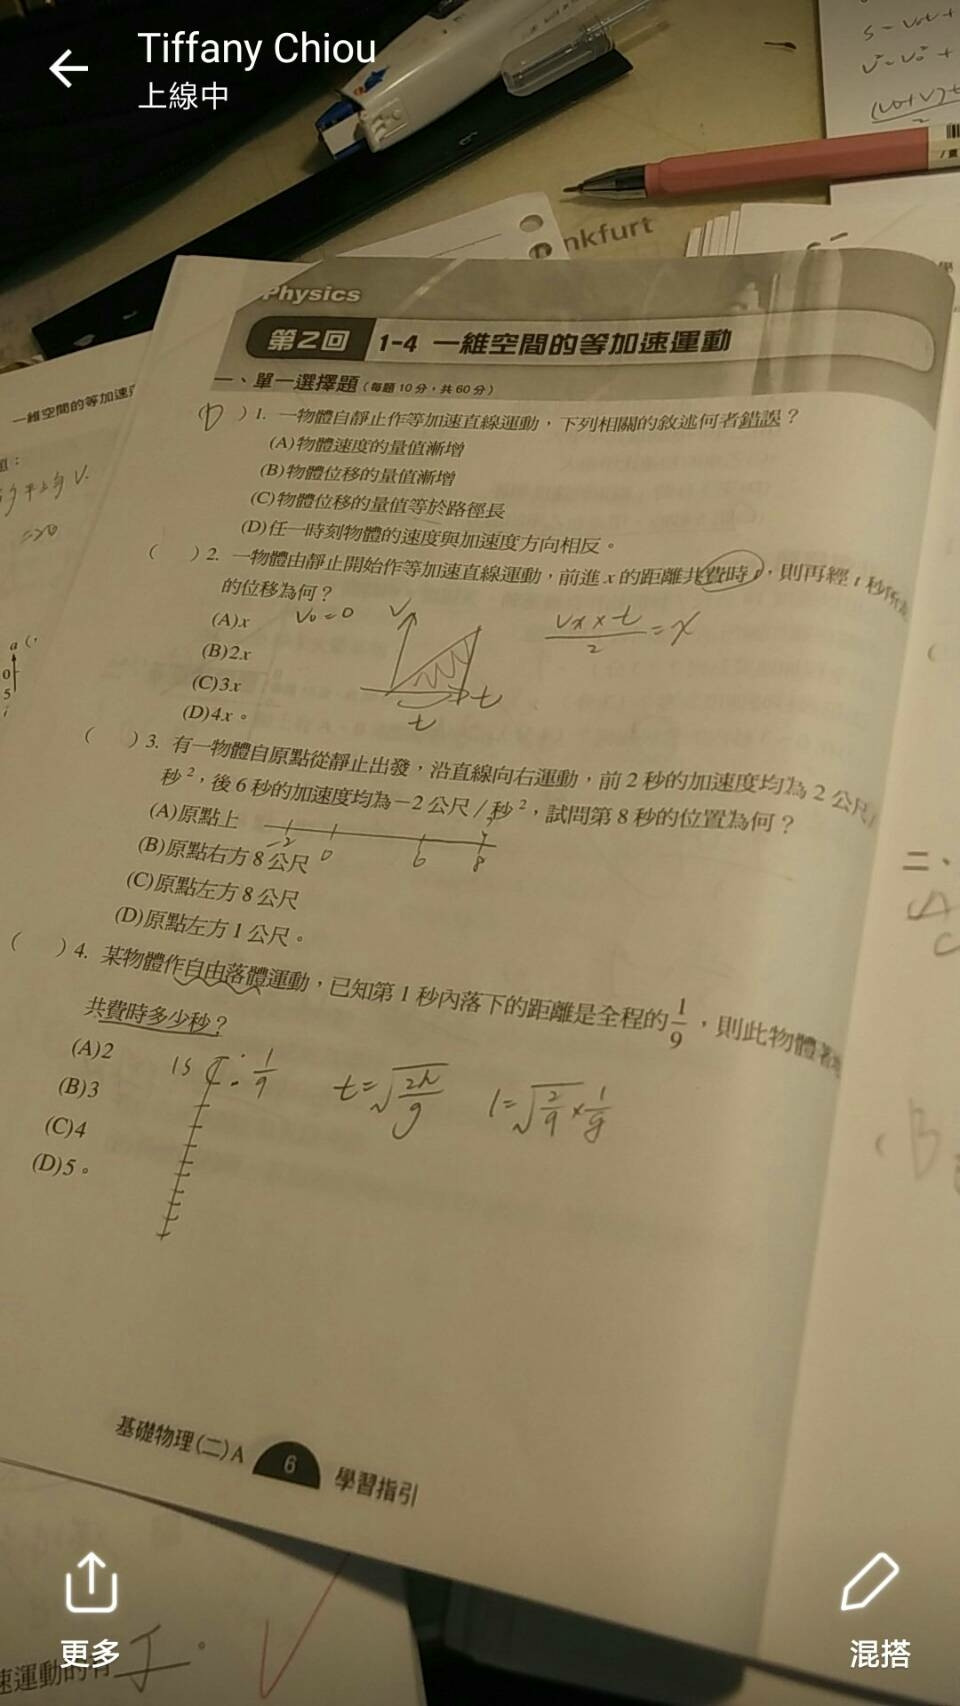 Tiffany Chiou
上線中
nkfurt
Physics
第2回 1-4 一維空間的等加速運動
一、單一選擇題(每題10分,共60分)
(D)1. 一物體自靜止作等加速直線運動,下列相關的敘述何者錯誤?
(A)物體速度的量值漸增
(B)物體位移的量值漸增
(C)物體位移的量值等於路徑長
(D)任一時刻物體的速度與加速度方向相反。
( )2. 一物體由靜止開始作等加速直線運動,前進x的距離共費時t,則再經t秒所
的位移為何?
(A)x
V₀=0
V
t
t
Vx×t/2=x
(B)2x
(C)3x
(D)4x。
( )3. 有一物體自原點從靜止出發,沿直線向右運動,前2秒的加速度均為2公尺/
秒²,後6秒的加速度均為-2公尺/秒²,試問第8秒的位置為何?
(A)原點上
-2 0 6 8
(B)原點右方8公尺
(C)原點左方8公尺
(D)原點左方1公尺。
( )4. 某物體作自由落體運動,已知第1秒內落下的距離是全程的1/9,則此物體著地
共費時多少秒?
(A)2
1s
1/9
t=√2h/g
(B)3
(C)4
(D)5。
基礎物理(二)A 6 學習指引
一維空間的等加速
=20
a
0
5
二、
B
速運動的有
更多
混搭